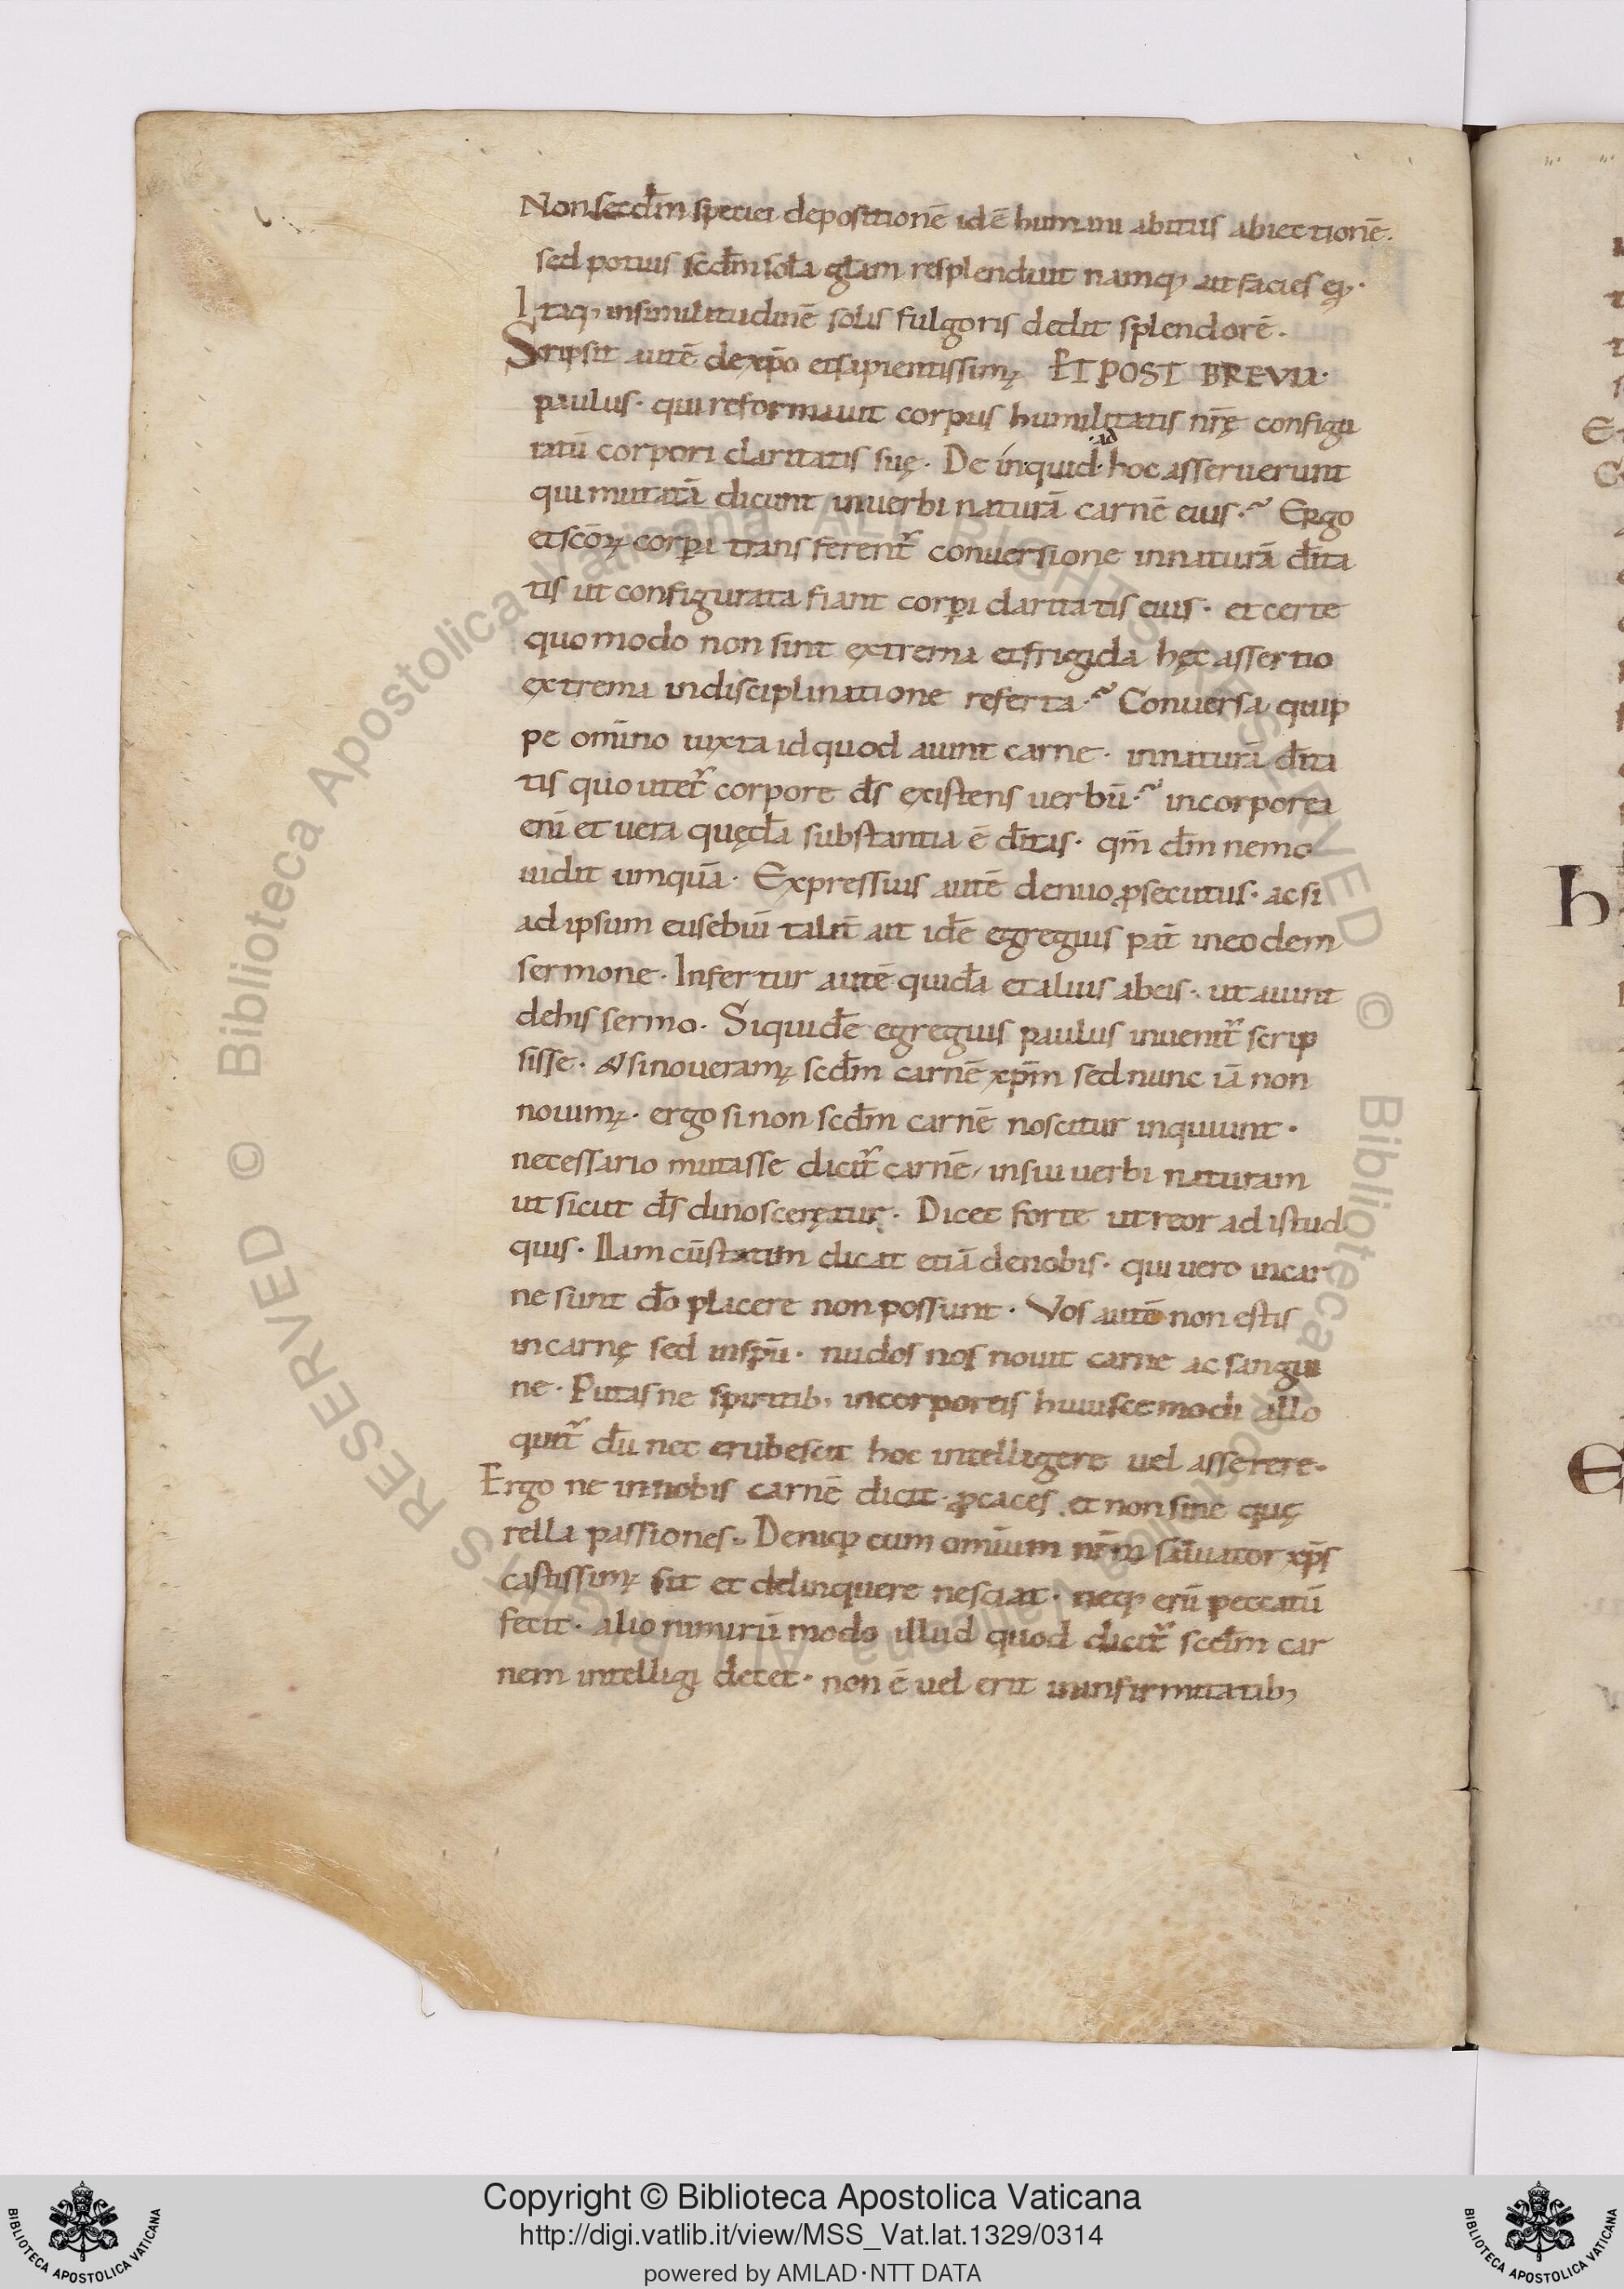 Non secdm̄ speciei depositionē idē humani abitus abiectionē.
sed potius scdm̄ sola gl̄am resplenduit namq; ait facies ei;·
Itaq; in similitudinē solis fulgoris dedit splendorē.
Scripsit autē de xp̄o et sapientissim; ET POST BREVIA·
paulus· qui reformauit corpus humilitatis nr̄ę configu
ratū corpori claritatis suę· De in·quid· hoc asseruerunt
id
qui mutatā dicunt in uerbi naturā carnē eius·? Ergo
et sc̄oꝝ corpi transferent̄ conuersione in naturā d̄ita
tis ut configurata fiant corpi claritatis eius· et certe
quomodo non sint extrema et frigida hęc assertio
extrema indisciplinatione referta·? Conuersa quip
pe om̄ino iuxta id quod aiunt carne· in naturā d̄ita
tis quo utet̄ corpore d̄s existens uerbū·? incorporea
enī et uera quęda̅ substantia ē d̄itas· qm̄ dm̄ nemo
uidit umquā· Expressius autē denuo ꝓsecutus· ac si
ad ipsum eusebiū talit̄ ait idē egregius pat̄ in eodem
sermone· Infertur autē quida̅ et alius ab eis· ut aiunt
de his sermo· Siquidē egregius paulus inuenit̄ scrip
sisse· & si noueram; scdm̄ carnē xp̄m sed nunc iā non
nouim;· ergo si non scdm̄ carnē noscitur inquiunt·
necessario mutasse dicit̄ carnē, in sui uerbi naturam
ut sicut d̄s dinosceretur· Dicet forte ut reor ad istud
quis· Nam cū statim dicat etiā de nobis· qui uero in car
ne sunt d̄o placere non possunt· Vos autē non estis
in carnę sed in sp̄u· nudos nos nouit carne ac sangui
ne· Putas ne spiritib; incorporeis huiuscemodi allo
quit̄ dū nec erubescit hoc intelligere uel asserere·
Ergo ne in nobis carnē dicit· ꝓcaces et non sine quę
rella passiones· Deniq; cum om̄ium nr̄m saluator xp̄s
castissim; sit et delinquere nesciat· neq; enī peccatū
fecit· alio nimirū modo illud quod dicit̄ scdm̄ car
nem intelligi decet· non ē uel erit in infirmitatib;
h
E
RESERVED © Biblioteca Apostolica Vaticana ALL RIGHTS RESERVED © Biblioteca Apostolica Vaticana ALL RIGHTS
Copyright © Biblioteca Apostolica Vaticana
http://digi.vatlib.it/view/MSS_Vat.lat.1329/0314
powered by AMLAD·NTT DATA
BIBLIOTECA APOSTOLICA VATICANA
BIBLIOTECA APOSTOLICA VATICANA